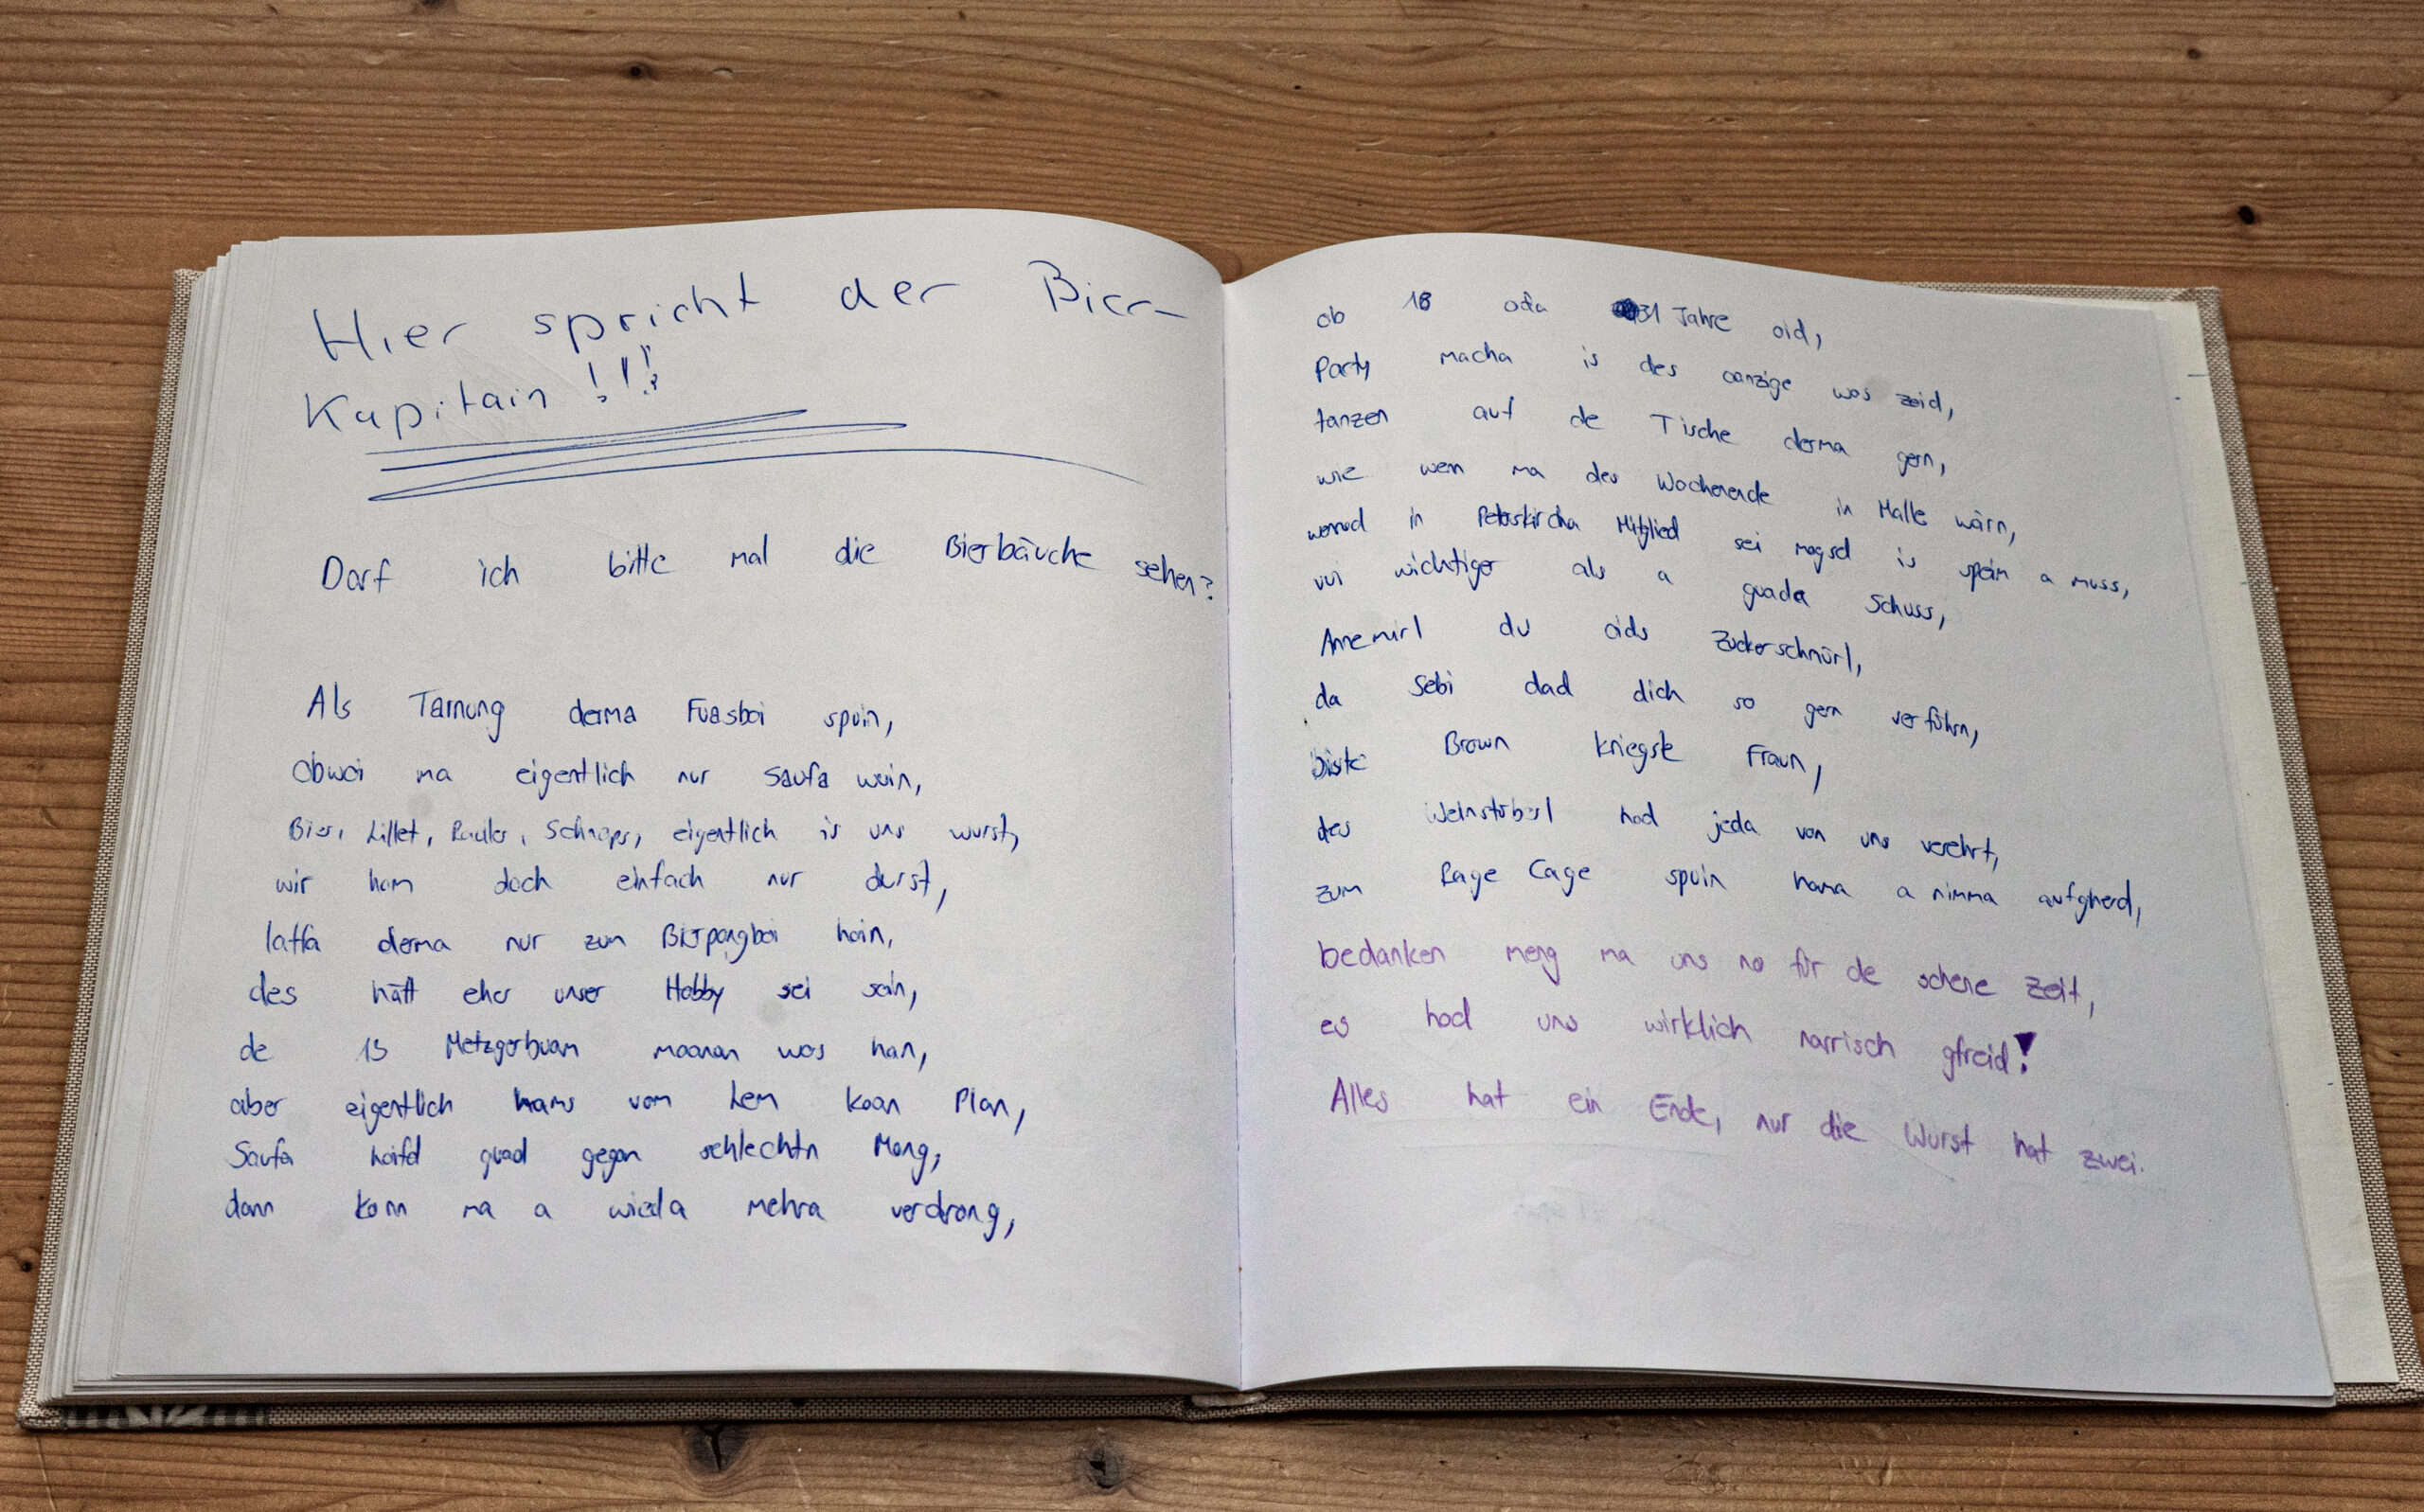 Hier spricht der Bier-
Kapitain !!!
Darf ich bitte mal die Bierbäuche sehen?
Als Tarnung derma Fuasboi spuin,
obwoi ma eigentlich nur saufa wuin,
Bier, Lillet, Radler, Schnaps, eigentlich is uns wurst,
wir ham doch einfach nur durst,
laffa derma nur zum Bierpongboi hoin,
des hätt eher unser Hobby sei soin,
de 13 Metzgerbuam moanan wos han,
aber eigentlich hams vom Lem koan Plan,
Saufa hoifd guad gegan schlechtn Mong,
dann konn ma a wieda mehra verdrong,
ob 18 oda 31 Jahre oid,
Party macha is des oanzige wos zeid,
tanzen auf de Tische derma gern,
wie wen ma des Wochenende in Malle wärn,
wennsd in Peterskircha Mitglied sei mogsd is speim a muss,
vui wichtiger als a guada Schuss,
Annemirl du oids Zuckerschnürl,
da Sebi dad dich so gern verführn,
biste Brown kriegste Fraun,
des Weinstüberl hod jeda von uns verehrt,
zum Rage Cage spuin hama a nimma aufgherd,
bedanken meng ma uns no für de schene Zeit,
es hod uns wirklich narrisch gfreid!
Alles hat ein Ende, nur die Wurst hat zwei.